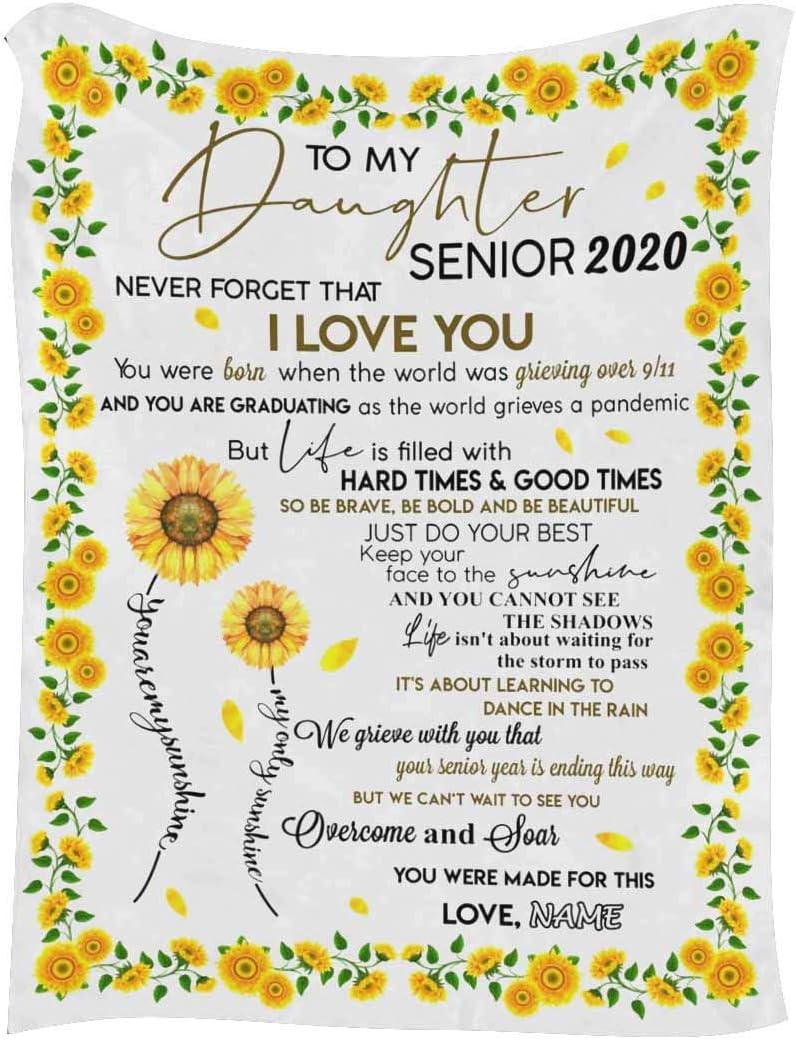 TO MY
Daughter
SENIOR 2020
NEVER FORGET THAT
I LOVE YOU
You were born when the world was grieving over 9/11
AND YOU ARE GRADUATING as the world grieves a pandemic
But Life is filled with
HARD TIMES & GOOD TIMES
SO BE BRAVE, BE BOLD AND BE BEAUTIFUL
JUST DO YOUR BEST
Keep your
face to the sunshine
AND YOU CANNOT SEE
THE SHADOWS
Life isn't about waiting for
the storm to pass
IT'S ABOUT LEARNING TO
DANCE IN THE RAIN
We grieve with you that
your senior year is ending this way
BUT WE CAN'T WAIT TO SEE YOU
Overcome and Soar
YOU WERE MADE FOR THIS
LOVE, NAME
Youaremysunshine
my only sunshine